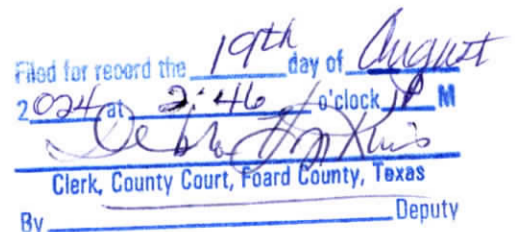 Filed for record the 19th day of August
2024 at 2:46 o'clock P M
Debra Hopkins
Clerk, County Court, Foard County, Texas
By Deputy